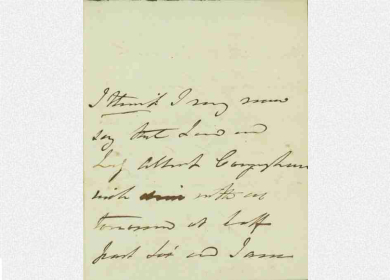 I think I may now
say that Lord and
Lady Albert Conyngham
will dine with us
tomorrow at half
past Six and I am